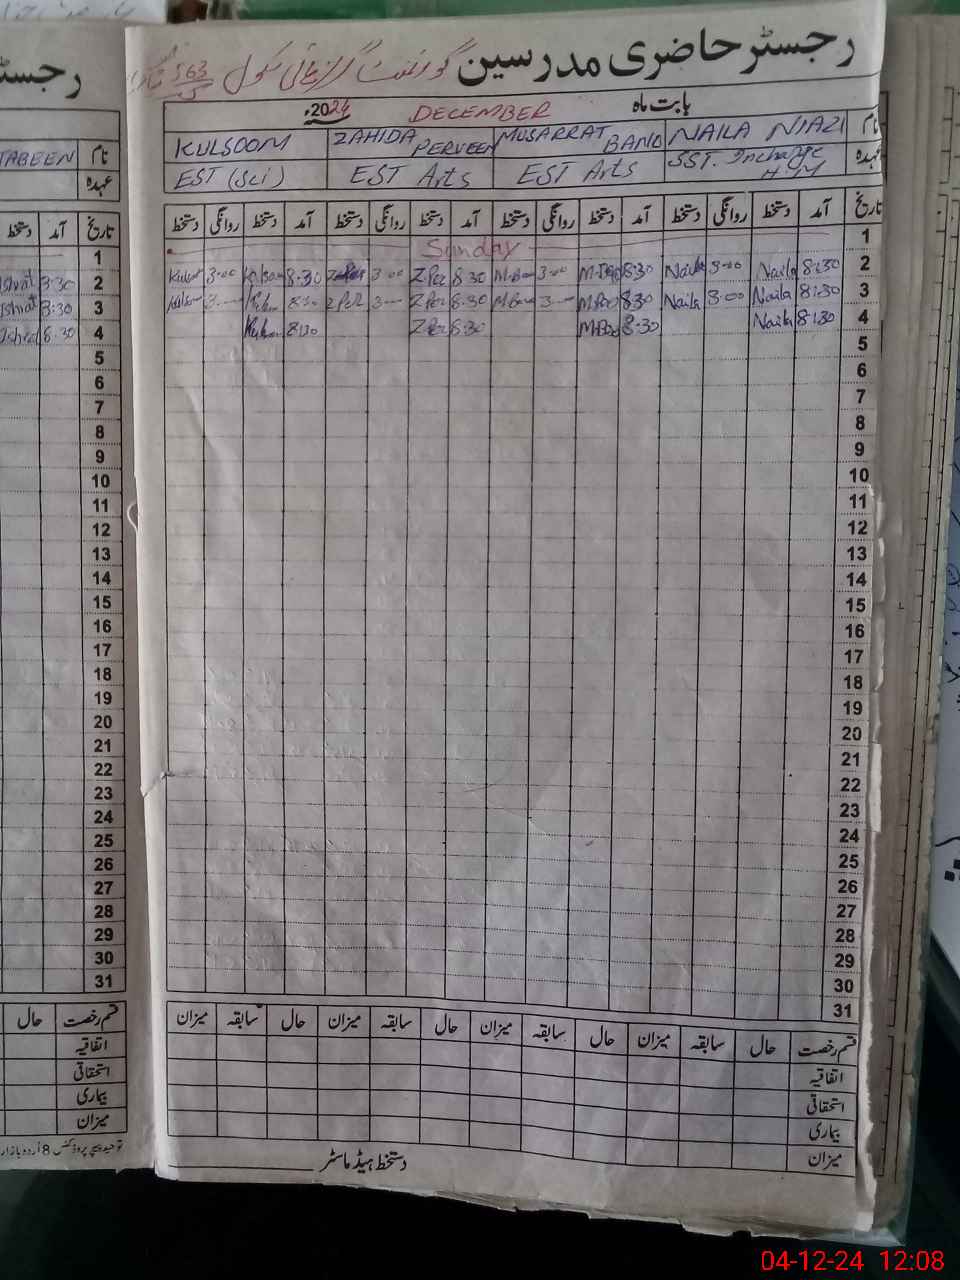 رجسٹر حاضری مدرسین گورنمنٹ گرلز ہائی سکول 563
بابت ماہ DECEMBER 2024ء
نام NAILA NIAZI MUSARRAT BANO ZAHIDA PERVEEN KULSOOM
عہدہ SST. Incharge H/M EST Arts EST Arts EST (Sci)
تاریخ آمد دستخط روانگی دستخط آمد دستخط روانگی دستخط آمد دستخط روانگی دستخط آمد دستخط روانگی دستخط
1 Sunday
2 8:30 Naila 3-00 Naila 8:30 3-00 M-Bano 8.30 Z Per 3-00 8-30 3-00
3 8:30 Naila 3-00 Naila 8:30 3- 8.30 Z Per 3- Z Per 8:30 3-
4 8:30 Naila 8-30 8:30 Z Per 8:30
5
6
7
8
9
10
11
12
13
14
15
16
17
18
19
20
21
22
23
24
25
26
27
28
29
30
31
قسم رخصت حال سابقہ میزان حال سابقہ میزان حال سابقہ میزان حال سابقہ میزان
اتفاقیہ
استحقاقی
بیماری
میزان
دستخط ہیڈ ماسٹر
رجسٹر
نام TABEEN
عہدہ
تاریخ آمد دستخط
1
2 8:30 Ishrat
3 8:30 Ishrat
4 8:30 Ishrat
5
6
7
8
9
10
11
12
13
14
15
16
17
18
19
20
21
22
23
24
25
26
27
28
29
30
31
قسم رخصت حال
اتفاقیہ
استحقاقی
بیماری
میزان
توحید پیپر پروڈکٹس 8 اردو بازار
04-12-24 12:08